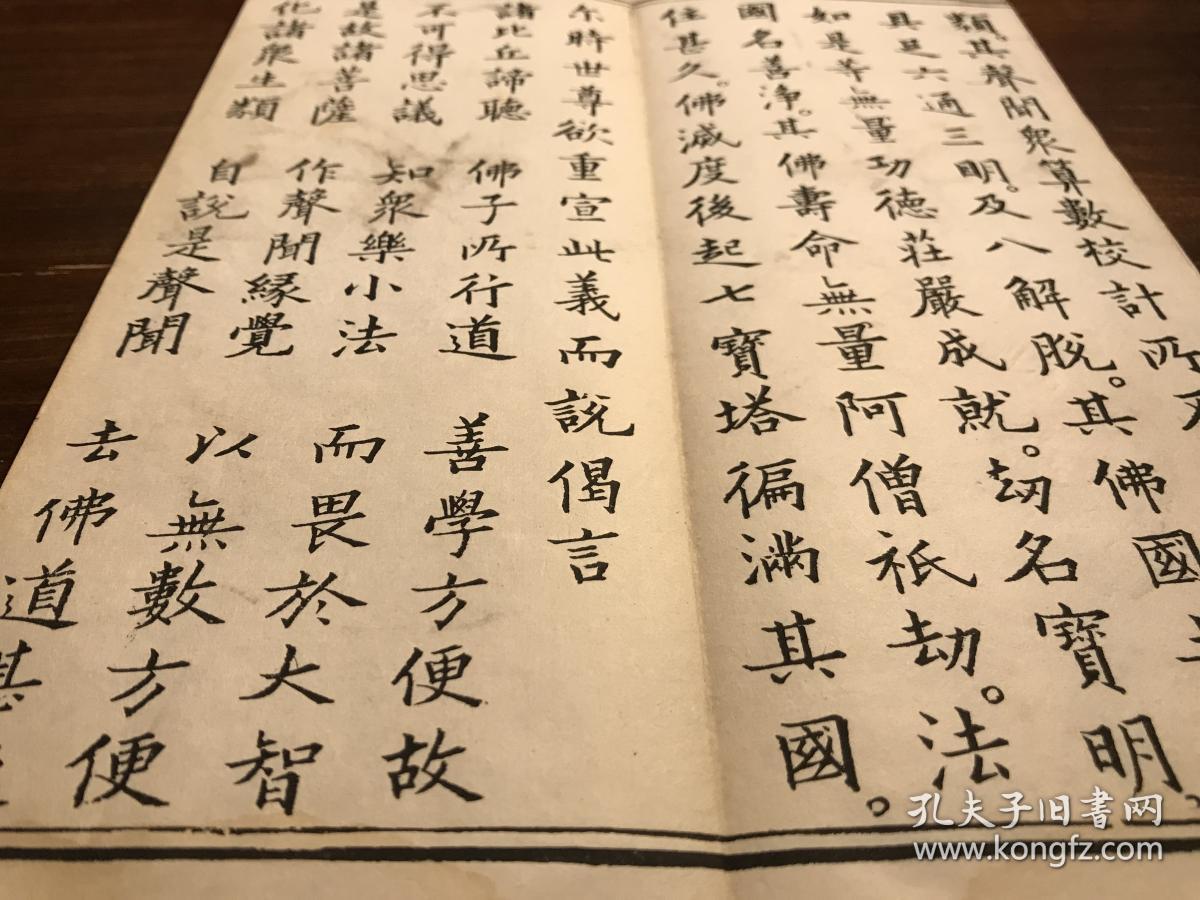 類其聲聞衆算數校計所
具足六通三明。及八解脫。其佛國土
如是等無量功德莊嚴成就。劫名寶明。
國名善淨。其佛壽命無量阿僧祇劫。法
住甚久。佛滅度後起七寶塔徧滿其國。
尒時世尊欲重宣此義而說偈言
諸比丘諦聽 佛子所行道 善學方便故
不可得思議 知衆樂小法 而畏於大智
是故諸菩薩 作聲聞緣覺 以無數方便
化諸衆生類 自說是聲聞 去佛道甚
孔夫子旧书网
www.kongfz.com